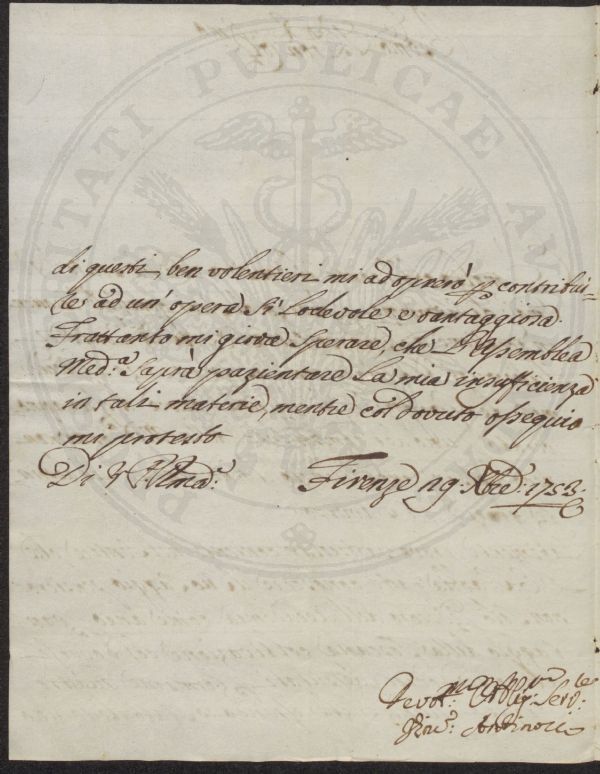 di questi, ben volentieri mi adoprerò p contribui-
re ad un' opera sì lodevole e vantaggiosa.
Frattanto mi giova sperare, che l'Assemblea
Med.a saprà pazientare la mia insufficienza
in tali materie, mentre col dovuto ossequio
mi protesto
Di
Firenze 29 Xbre: 1753.
Devot.mo Obblig. Serv.re
Antinori
PUBLICAE